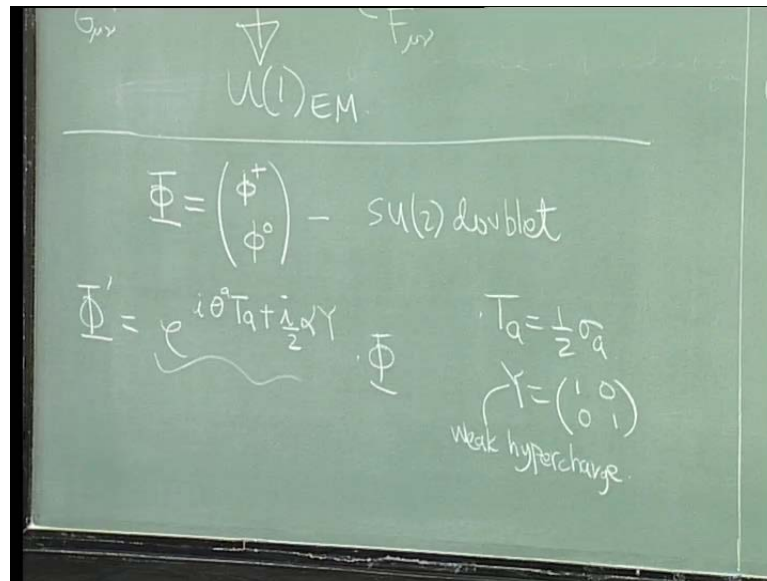 G_{μν} F_{μν}
U(1)_{EM}.
Φ = (φ⁺ φ⁰) – SU(2) doublet
Φ' = e^{iθ^a T_a + i/2 αY} · Φ
T_a = 1/2 σ_a
Y = (1 0 0 1)
weak hypercharge.